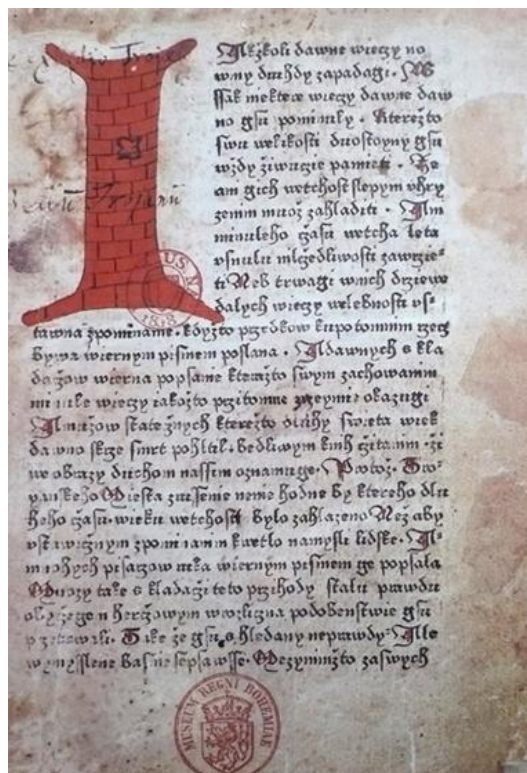 Ačžkoli dawne wieczy no
winy duchdy zapadagi. W
ssak niektere wieczy dawne daw
no gsu pominuly. Kterežto
swu welikosti duostoyny gsu
wždy žiwucie pamieti. Ze
ani gich wetchost slepym uhry
zenim muož zahladiti. A ni
minuleho čzasu wetcha leta
usnulu mlčedliwosti zawrzie-
ti Neb trwagi wnich drziewe
dalych wieczy welebnosti us-
tawna zpominanie. kdyžto przedkow kupotomnim rzecz
bywa wiernym pismem poslana. A dawnych skla
dačow wierna popsanie kterežto swym zachowanim
minule wieczy iakožto przitomne okazugi
A mužow statečnych kterežto swieta wiek
dawno skrze smrt pohltil. bedliwym knih čitanim. ži
we obrazy duchom nassim oznamuge. Protož. Tro-
yanskeho Miesta zrussenie nenie hodne by ktereho dlu
heho čzasu. wieku wetchosti bylo zahlazeno Než aby
ustawičnym zpominanim kwetlo namysli lidske. A-
mnohych pisarzow ruka wiernym pismem ge popsala
Mnozy take skladači teto przihody stalu prawdu
w rozlična podobenstwie gsu
. Take že gsu shledany neprawdy. Alle
wymyslene basnie sepsawsse. Mezynimižto zaswych
MUSEUM REGNI BOHEMIAE
1818